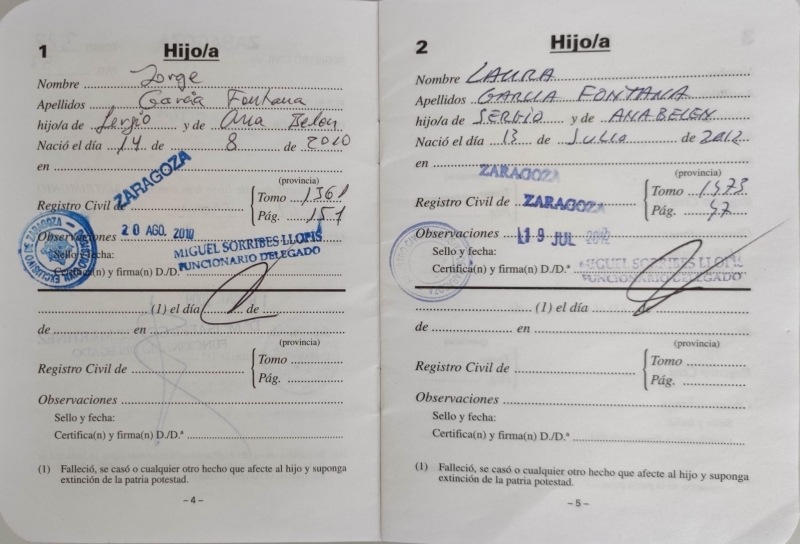 1 Hijo/a
Nombre Jorge
Apellidos García Fontana
hijo/a de Sergio y de Ana Belen
Nació el día 14 de 8 de 2010
en
(provincia)
ZARAGOZA
Registro Civil de Tomo 1361
Pág. 151
Observaciones 20 AGO. 2010
MIGUEL SORRIBES LLOPIS
FUNCIONARIO DELEGADO
Sello y fecha:
Certifica(n) y firma(n) D./D.ª
(1) el día de
de en
(provincia)
Registro Civil de Tomo
Pág.
Observaciones
Sello y fecha:
Certifica(n) y firma(n) D./D.ª
(1) Falleció, se casó o cualquier otro hecho que afecte al hijo y suponga
extinción de la patria potestad.
– 4 –
2 Hijo/a
Nombre LAURA
Apellidos GARCIA FONTANA
hijo/a de SERGIO y de ANABELEN
Nació el día 13 de Julio de 2012
en ZARAGOZA
(provincia)
Registro Civil de ZARAGOZA Tomo 1473
Pág. 47
Observaciones 19 JUL 2012
Sello y fecha:
MIGUEL SORRIBES LLOPIS
Certifica(n) y firma(n) D./D.ª FUNCIONARIO DELEGADO
(1) el día
de en
(provincia)
Registro Civil de Tomo
Pág.
Observaciones
Sello y fecha:
Certifica(n) y firma(n) D./D.ª
(1) Falleció, se casó o cualquier otro hecho que afecte al hijo y suponga
extinción de la patria potestad.
– 5 –